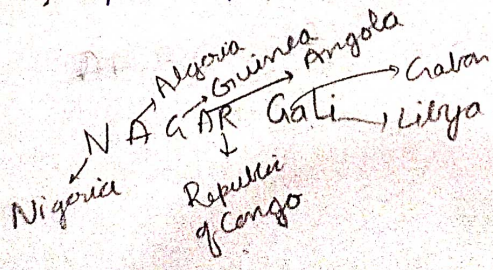 Algeria
Guinea
Angola
N A G AR Gali
Gabon
Libya
Nigeria
Republic
of Congo